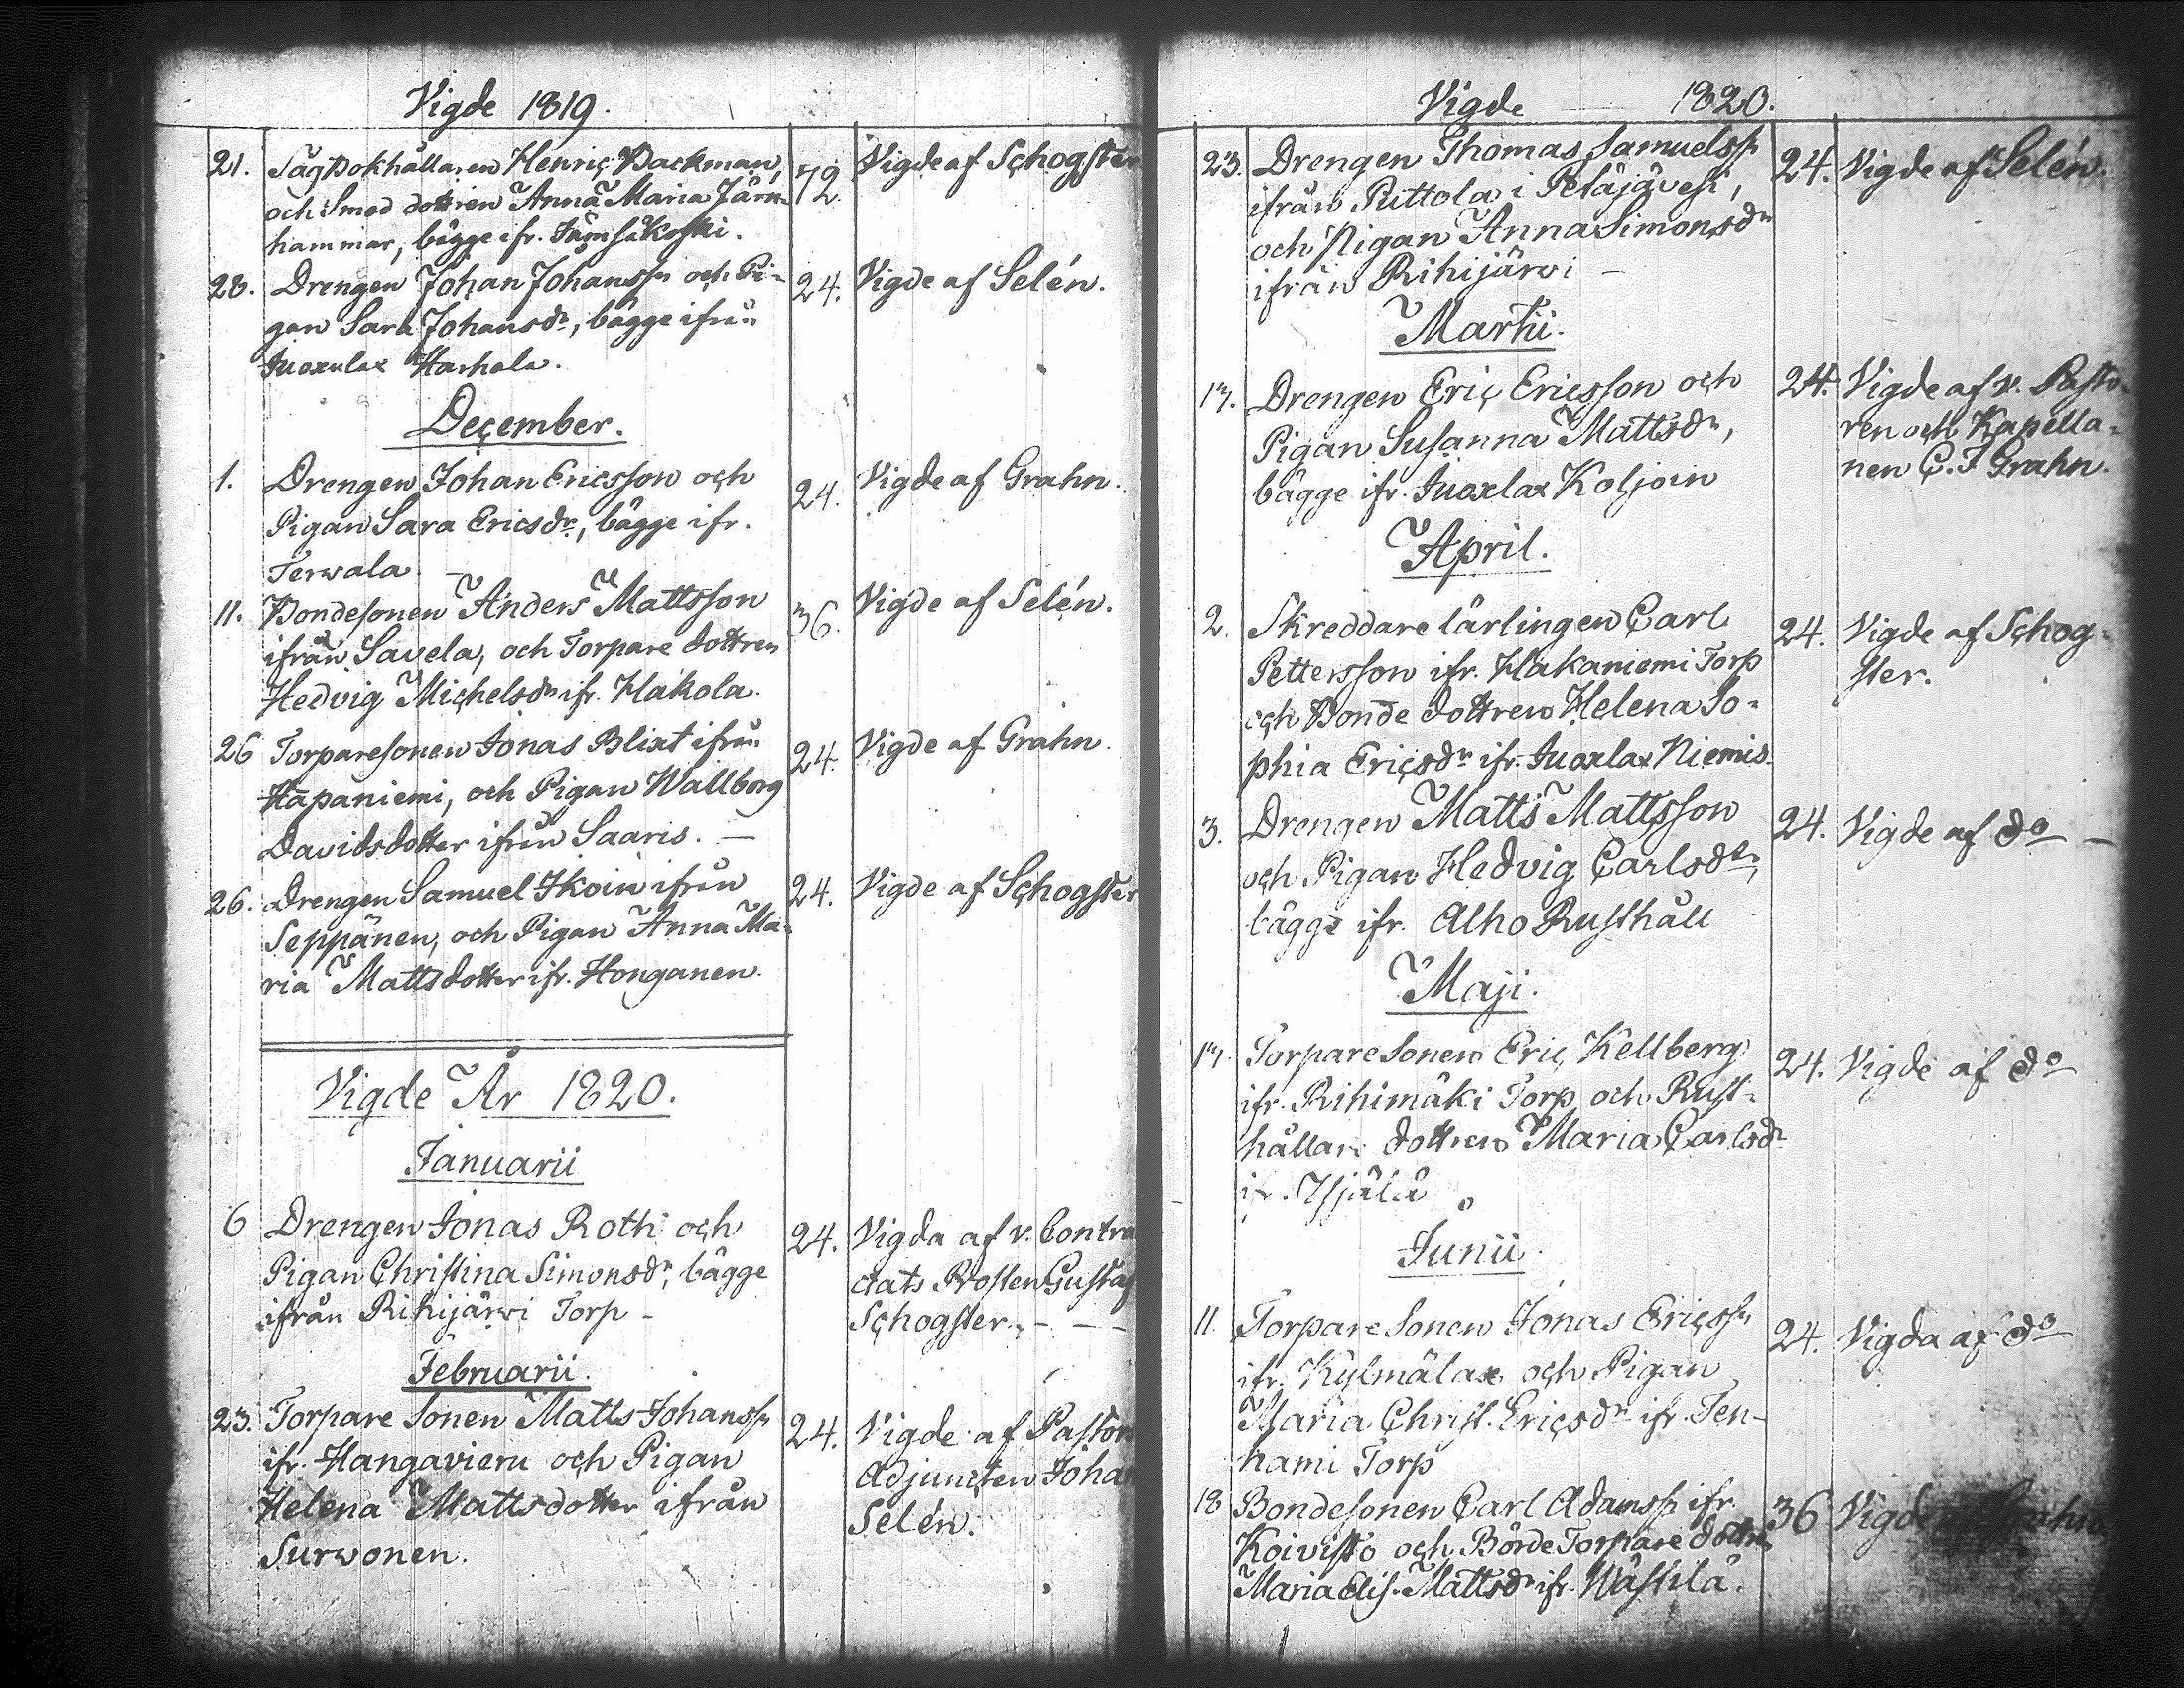 Vigde 1819.
21. Sågbokhållaren Henric Backman, 72. Vigde af Schogster
och Smed dottren Anna Maria Järn-
hammar, bägge ifr. Jämsäkoski.
28. Drengen Johan Johanss:n och Pi- 24. Vigde af Selén.
gan Sara Johansdr, bägge ifrån
Juoxulax Harhala.
December.
1. Drengen Johan Ericsson och 24. Vigde af Grahn.
Pigan Sara Ericsdr, bägge ifr.
Terwala.
11. Bondesonen Anders Mattsson 36. Vigde af Selén.
ifrån Savela, och Torpare dottren
Hedvig Michelsdr ifr. Hakola.
26 Torparesonen Jonas Blixt ifrån 24. Vigde af Grahn.
Hapaniemi, och Pigan Wallborg
Davidsdotter ifrån Saaris. —
26. Drengen Samuel Ikoin ifrån 24. Vigde af Schogster
Seppänen, och Pigan Anna Ma-
ria Mattsdotter ifr. Honganen.
Vigde År 1820.
Januarii
6 Drengen Jonas Roth och 24. Vigda af v. Contra
Pigan Christina Simonsdr, bägge ctats Prosten Gustaf
ifrån Rihijärwi Torp - Schogster. - - -
Februarii.
23. Torpare Sonen Matts Johanss:n 24. Vigde af Pastors
ifr. Hangavieru och Pigan Adjuncten Johan
Helena Mattsdotter ifrån Selén.
Surwonen.
Vigde 1820.
23. Drengen Thomas Samuelss:n 24. Vigde af Selén.
ifrån Puttola i Petäjävesi,
och Pigan Anna Simonsdr
ifrån Rihijärwi —
Martii.
17. Drengen Eric Ericsson och 24. Vigde af v. Pasto-
Pigan Susanna Mattsdr, ren och Kapella-
bägge ifr. Juoxlax Koljoin nen C. J Grahn.
April.
2. Skreddare lärlingen Carl 24. Vigde af Schog-
Pettersson ifr. Hakaniemi Torp ster.
och Bonde dottren Helena So-
phia Ericsdr ifr. Juoxlax Niemis.
3. Drengen Matts Mattsson 24. Vigde af do —
och Pigan Hedvig Carlsdr,
bägge ifr. Alho Rusthåll
Maji.
17. Torpare Sonen Eric Kellberg 24. Vigde af do
ifr. Rihimäki Torp och Rust-
hållare dottren Maria Carlsdr
ifr.
Junii
11. Torpare Sonen Jonas Ericss:n 24. Vigda af do
ifr. Kylmälax och Pigan
Maria Christ. Ericsdr ifr. Ten-
hami Torp
18 Bondesonen Carl Adamss:n ifr. 36 Vigde
Koivisto och Börde Torpare dottren
Maria Elis. Mattsdr ifr. Wästilä.